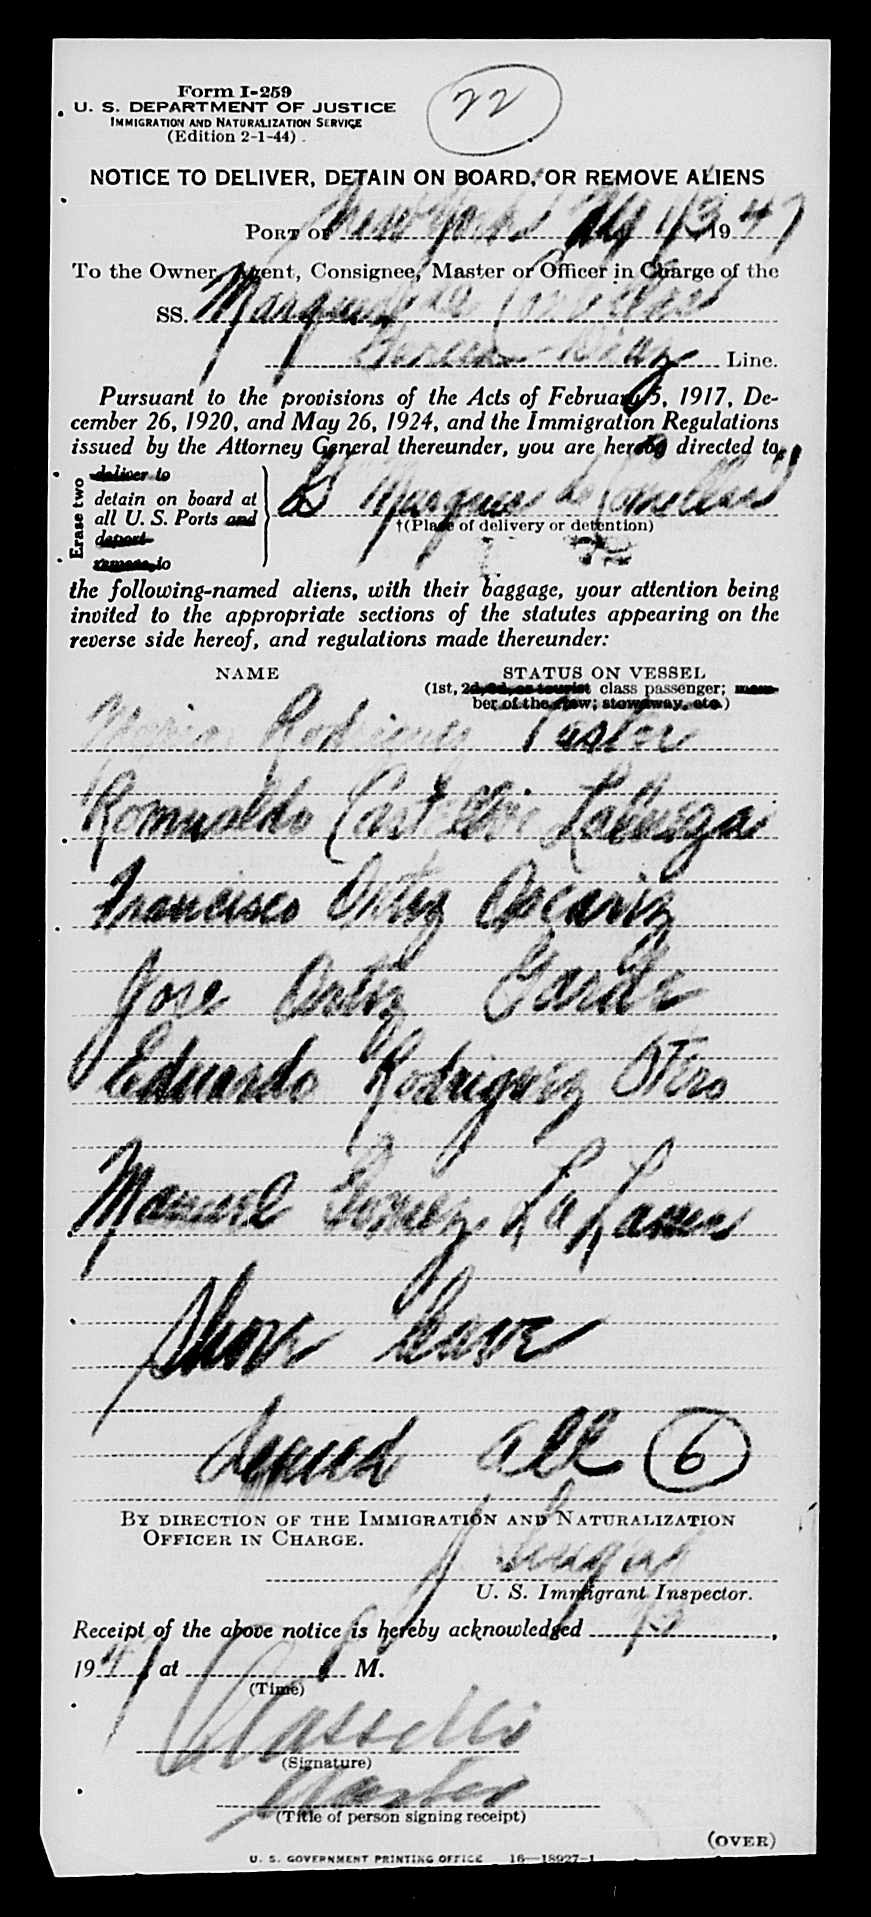 Form I-259
U. S. DEPARTMENT OF JUSTICE
IMMIGRATION AND NATURALIZATION SERVICE
(Edition 2-1-44)
22
NOTICE TO DELIVER, DETAIN ON BOARD, OR REMOVE ALIENS
PORT OF New York 13 1947
To the Owner, Agent, Consignee, Master or Officer in Charge of the
SS. Marques de Comillas
Garcia Diaz Line.
Pursuant to the provisions of the Acts of February 5, 1917, De-
cember 26, 1920, and May 26, 1924, and the Immigration Regulations
issued by the Attorney General thereunder, you are hereby directed to
Erase two
deliver to
detain on board at
all U. S. Ports and
deport
remove to
SS Marques de Comillas
†(Place of delivery or detention)
the following-named aliens, with their baggage, your attention being
invited to the appropriate sections of the statutes appearing on the
reverse side hereof, and regulations made thereunder:
NAME STATUS ON VESSEL
(1st, 2d, 3d, or tourist class passenger; mem-
ber of the crew; stowaway, etc.)
Rodriguez Pastor
Romualdo Castelvi
Francisco Ortiz
Jose Ortiz
Eduardo Rodriguez Otero
Manuel Gomez
Shore leave
denied all 6
BY DIRECTION OF THE IMMIGRATION AND NATURALIZATION
OFFICER IN CHARGE.
U. S. Immigrant Inspector.
Receipt of the above notice is hereby acknowledged ,
1947 at M.
(Time)
(Signature)
Master
(Title of person signing receipt)
(OVER)
U. S. GOVERNMENT PRINTING OFFICE 16—18927-1